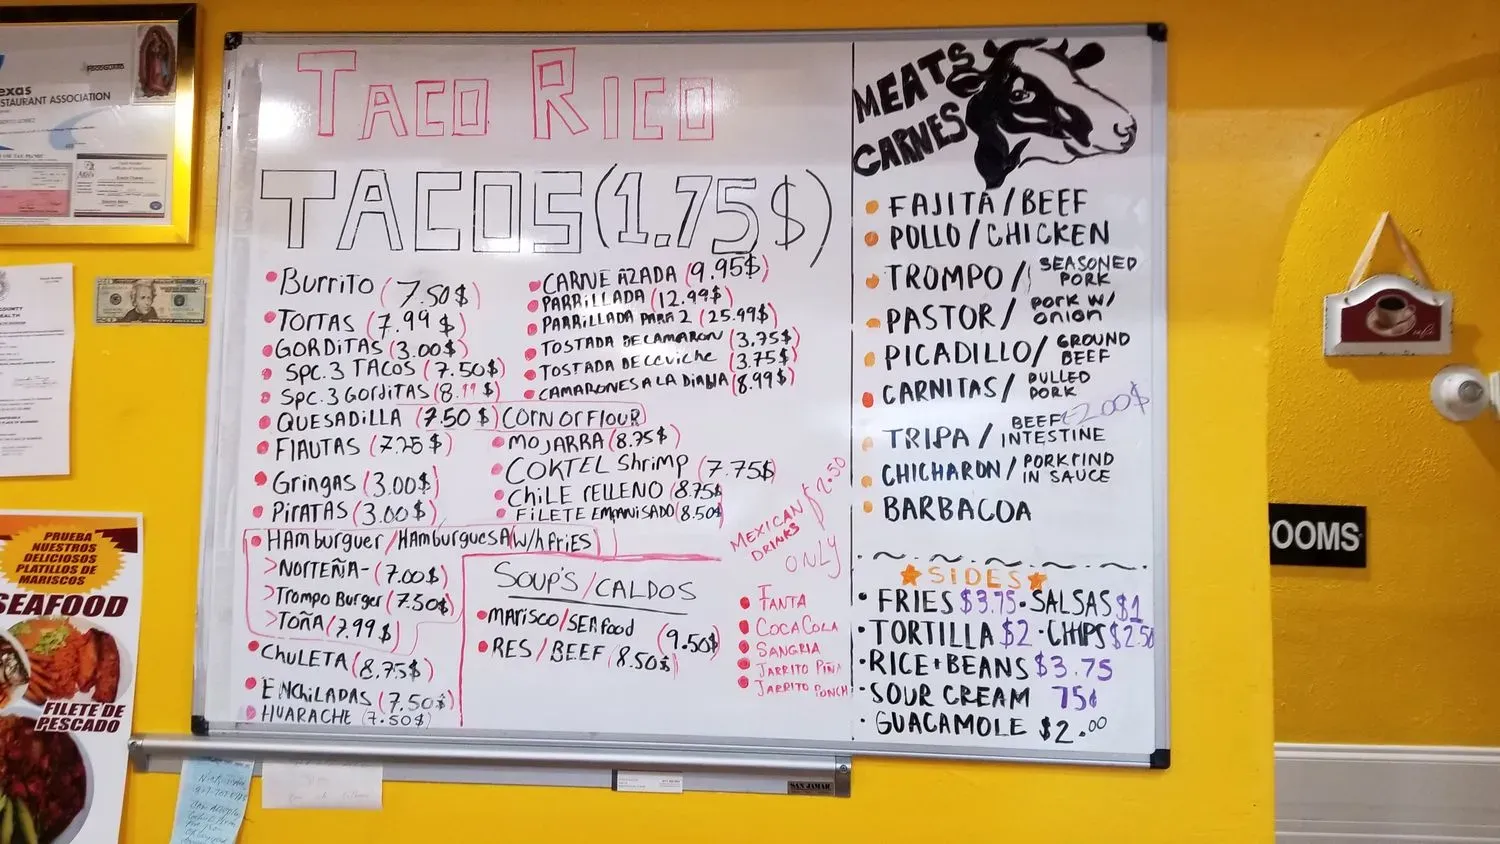 FOODGUARD
exas
STAURANT ASSOCIATION
TACO RICO
TACOS (1.75$)
BURRITO (7.50$)
TORTAS (7.99$)
GORDITAS (3.00$)
SPC. 3 TACOS (7.50$)
SPC. 3 GORDITAS (8.99$)
QUESADILLA (7.50$) CORN OR FLOUR
FLAUTAS (7.25$)
GRINGAS (3.00$)
PIRATAS (3.00$)
HAMburguer/HAMburguesA W/h friES
>NORTEÑA- (7.00$)
>Trompo Burger (7.50$)
>TOÑA (7.99$)
CHULETA (8.75$)
ENCHILADAS (7.50$)
HUARACHE (7.50$)
CARNE AZADA (9.95$)
PARRILLADA (12.99$)
PARRILLADA PARA 2 (25.99$)
TOSTADA DE CAMARON (3.75$)
TOSTADA DE CEVICHE (3.75$)
CAMARONES A LA DIABLA (8.99$)
MOJARRA (8.75$)
COKTEL Shrimp (7.75$)
CHILE RELLENO (8.75$
FILETE EMPANISADO (8.50$
SOUP'S/CALDOS
MARISCO/SEAfood (9.50$)
RES/BEEF (8.50$)
MEXICAN $2.50
DRINKS
ONLY
FANTA
COCACOLA
SANGRIA
JARRITO PIÑA
JARRITO PONCH
MEATS
CARNES
FAJITA/BEEF
POLLO/CHICKEN
TROMPO/ SEASONED
PORK
PASTOR/ PORK W/
ONION
PICADILLO/ GROUND
BEEF
CARNITAS/ PULLED
PORK
TRIPA/ BEEF +2.00$
INTESTINE
CHICHARON/ PORK RIND
IN SAUCE
BARBACOA
SIDES
FRIES $3.75 · SALSAS $1
TORTILLA $2 · CHIPS $2.50
RICE + BEANS $3.75
SOUR CREAM 75¢
GUACAMOLE $2.00
PRUEBA
NUESTROS
DELICIOSOS
PLATILLOS DE
MARISCOS
SEAFOOD
FILETE DE
PESCADO
SAN JAMAR
OOMS